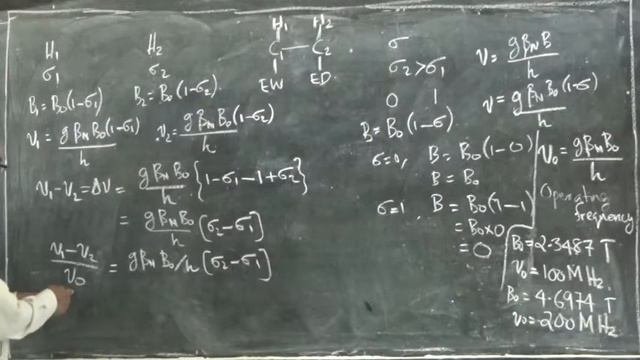 H₁ H₂
σ₁ σ₂
B₁=B₀(1-σ₁) B₂=B₀(1-σ₂)
ν₁=gβ_N B₀(1-σ₁)/h ν₂=gβ_N B₀(1-σ₂)/h
ν₁-ν₂=Δν = gβ_N B₀/h {1-σ₁-1+σ₂}
= gβ_N B₀/h (σ₂-σ₁)
ν₁-ν₂/ν₀ = gβ_N B₀/h [σ₂-σ₁]
H₁ H₂
C₁—C₂
EW ED
σ
σ₂>σ₁
0 1
B=B₀(1-σ)
σ=0, B=B₀(1-0)
B=B₀
σ=1, B=B₀(1-1)
=B₀×0
=0
ν=gβ_N B/h
ν=gβ_N B₀(1-σ)/h
ν₀=gβ_N B₀/h
Operating
frequency
B₀=2.3487 T
ν₀=100MHz
B₀=4.6974 T
ν₀=200MHz